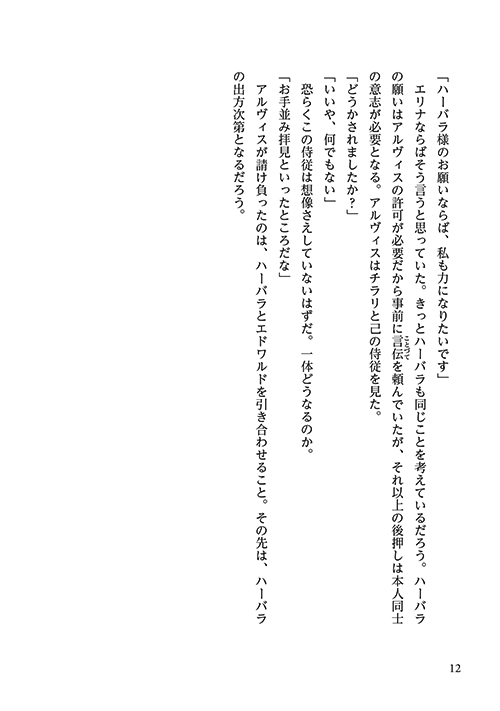 「ハーバラ様のお願いならば、私も力になりたいです」
エリナならばそう言うと思っていた。きっとハーバラも同じことを考えているだろう。ハーバラ
の願いはアルヴィスの許可が必要だから事前に言伝を頼んでいたが、それ以上の後押しは本人同士
ことづて
の意志が必要となる。アルヴィスはチラリと己の侍従を見た。
「どうかされましたか？」
「いいや、何でもない」
恐らくこの侍従は想像さえしていないはずだ。一体どうなるのか。
「お手並み拝見といったところだな」
アルヴィスが請け負ったのは、ハーバラとエドワルドを引き合わせること。その先は、ハーバラ
の出方次第となるだろう。
12